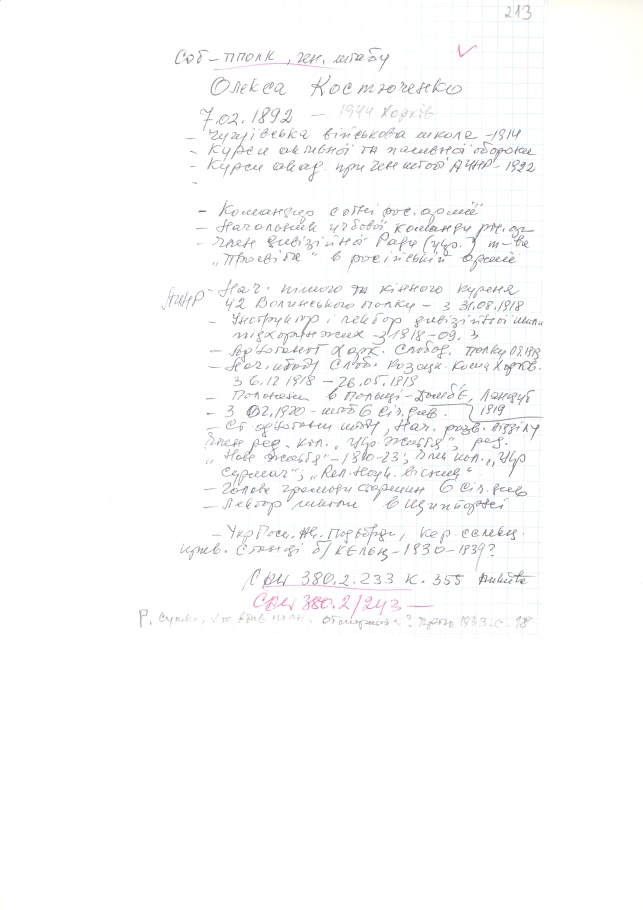 213
Соб - пполк, ген. штабу
Олекса Костюченко
7.02.1892 - 1944 Харків
- Чугуївська військова школа - 1914
- Курси активної та пасивної оборони
- Курси акад. при ген штабі АУНР - 1922
-
- Командир сотні рос. армії
- Начальник учбової команди
- Член дивізійної Ради (укр.) т-ва
"Просвіта" в російській армії
АУНР - Нач. пішого та кінного куреня
42 Волинського полку - з 31.08.1918
- Інструктор і лектор дивізійної школи
підхорунжих з 1918-09.
- Ад'ютант Харк. Слобід. полку
- Нач. штабу Слоб. козацьк. Коша Харків.
з 6.12 1918 - 26.05.1919
- Полонени в Польщі - Домб'є, Ланцут
- З 02.1920 - штаб 6 січ. див. 1919
- Ст ад'ютант штабу, Нач. розв. відділу
Член ред. кол. "Укр. Життя", ред.
"Нове Життя" - 1920-23; Член кол. "Укр
Сурмач"; "Рел. Наук. Вісник"
- Голова громади старшин 6 січ. див
- Лектор школи в Щипіорні
- Укр. , кер. селекц.
Станції б/ КЕЛЬЦ - 1930-1939?
380.2.233 К. 355
380.2/243 —
Р. 1933. с. 18